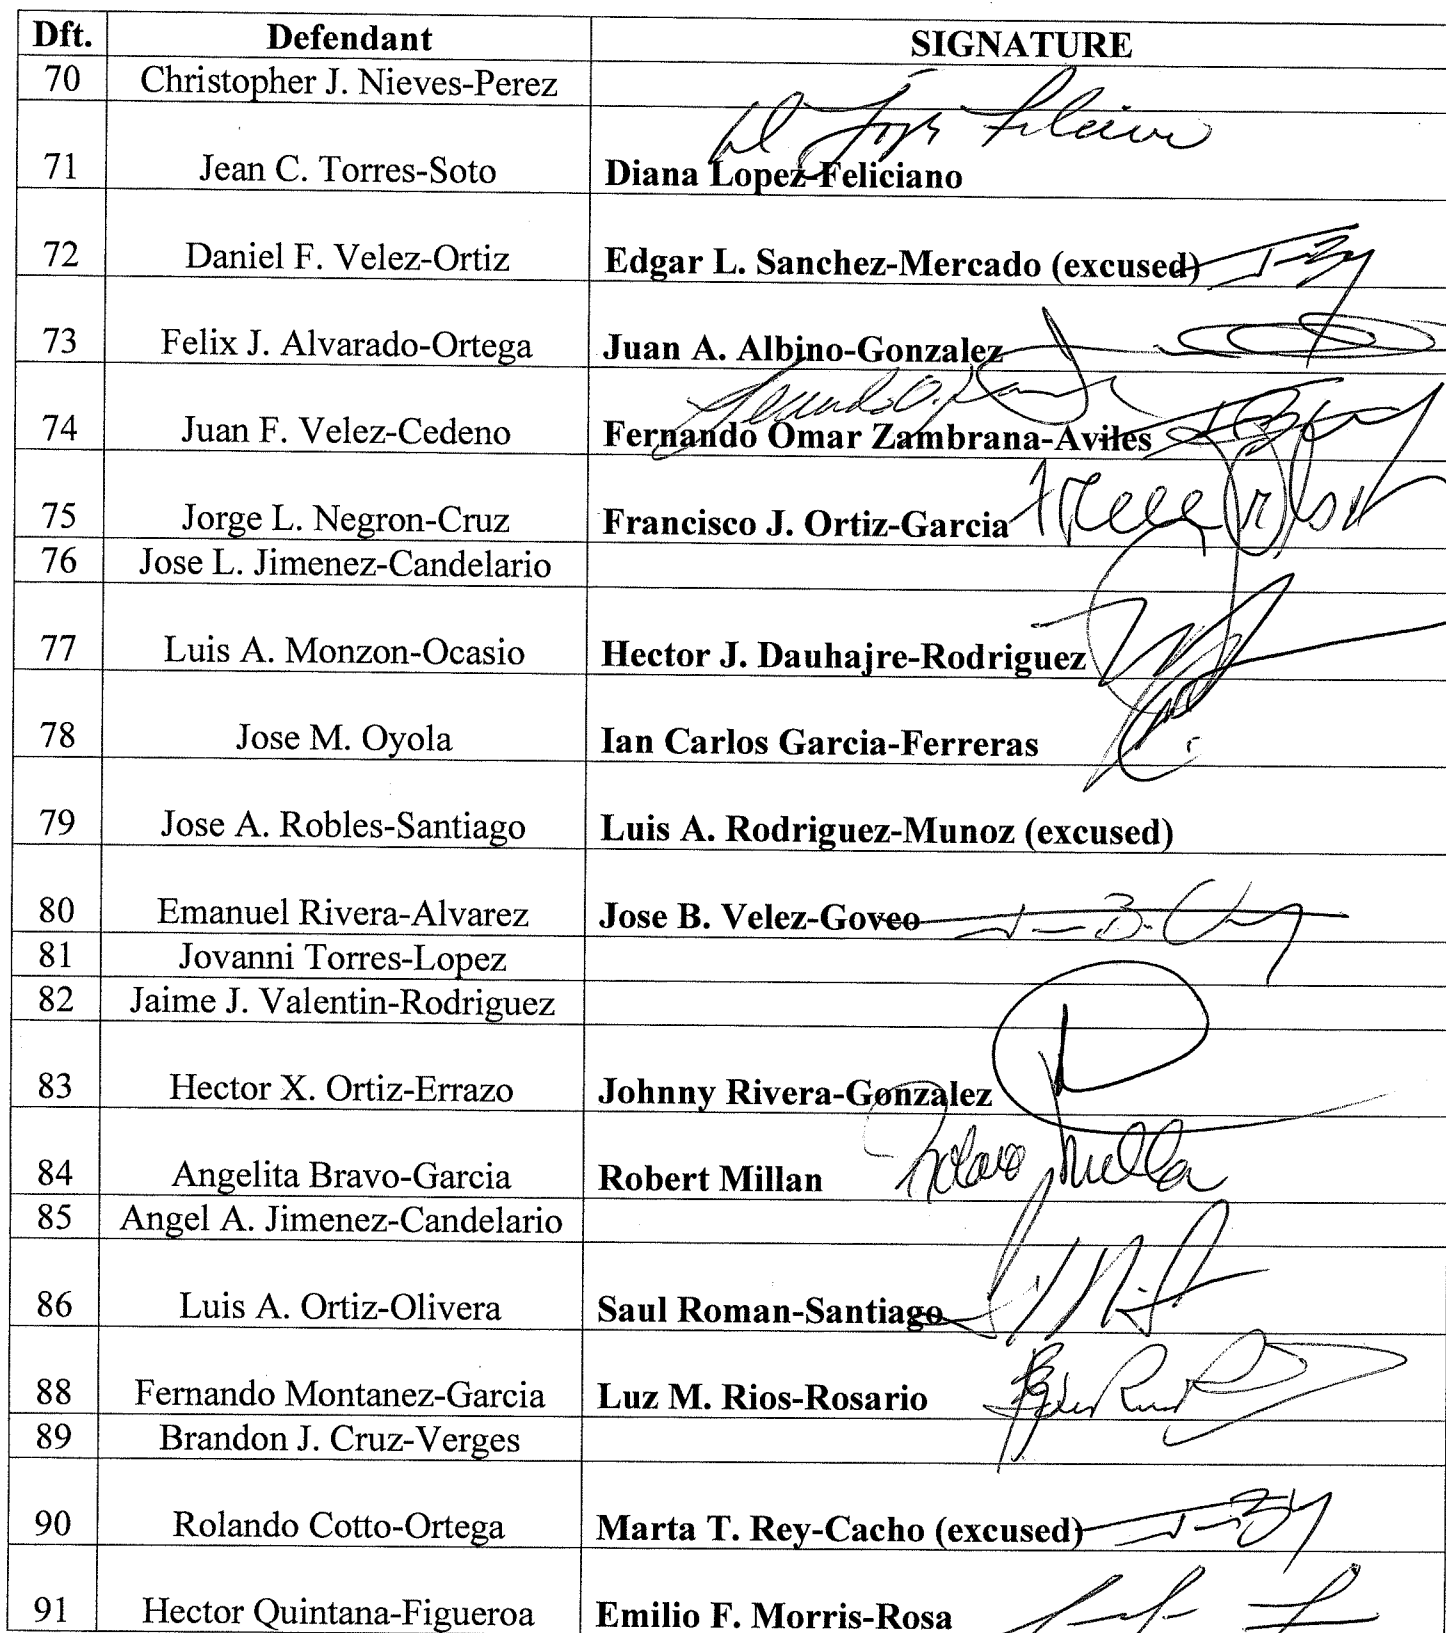 Dft. Defendant SIGNATURE
70 Christopher J. Nieves-Perez
71 Jean C. Torres-Soto Diana Lopez-Feliciano
72 Daniel F. Velez-Ortiz Edgar L. Sanchez-Mercado (excused)
73 Felix J. Alvarado-Ortega Juan A. Albino-Gonzalez
74 Juan F. Velez-Cedeno Fernando Omar Zambrana-Aviles
75 Jorge L. Negron-Cruz Francisco J. Ortiz-Garcia
76 Jose L. Jimenez-Candelario
77 Luis A. Monzon-Ocasio Hector J. Dauhajre-Rodriguez
78 Jose M. Oyola Ian Carlos Garcia-Ferreras
79 Jose A. Robles-Santiago Luis A. Rodriguez-Munoz (excused)
80 Emanuel Rivera-Alvarez Jose B. Velez-Goveo
81 Jovanni Torres-Lopez
82 Jaime J. Valentin-Rodriguez
83 Hector X. Ortiz-Errazo Johnny Rivera-Gonzalez
84 Angelita Bravo-Garcia Robert Millan
85 Angel A. Jimenez-Candelario
86 Luis A. Ortiz-Olivera Saul Roman-Santiago
88 Fernando Montanez-Garcia Luz M. Rios-Rosario
89 Brandon J. Cruz-Verges
90 Rolando Cotto-Ortega Marta T. Rey-Cacho (excused)
91 Hector Quintana-Figueroa Emilio F. Morris-Rosa